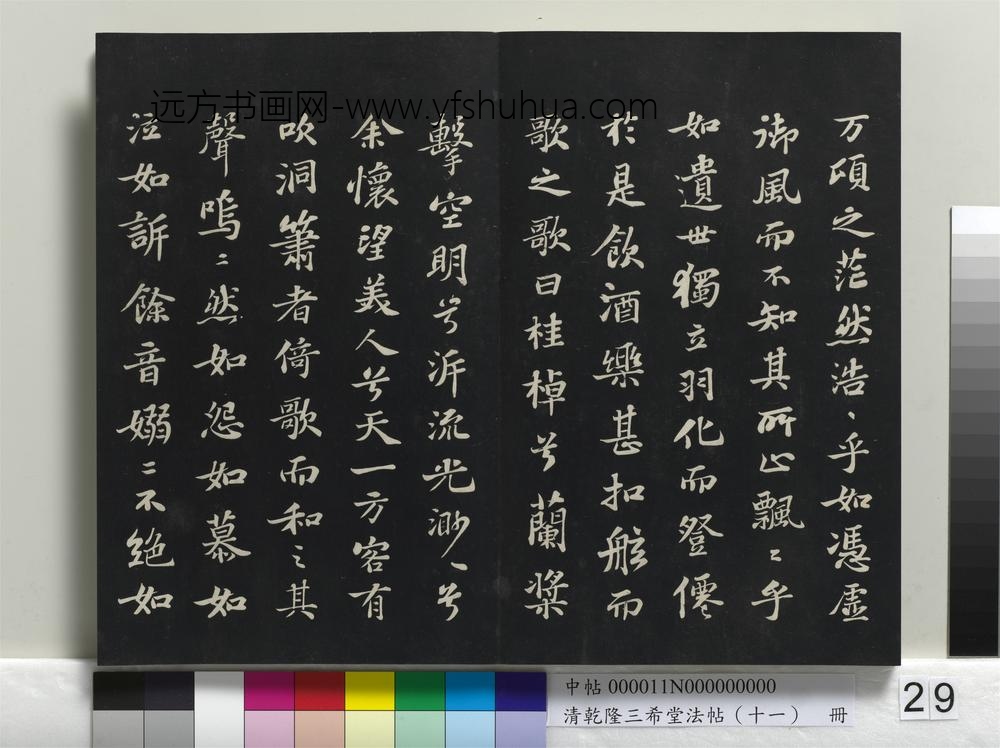 远方书画网-www.yfshuhua.com
万頃之茫然浩〻乎如憑虚
御風而不知其所止飄〻乎
如遺世獨立羽化而登僊
於是飲酒樂甚扣舷而
歌之歌曰桂棹兮蘭槳
擊空明兮泝流光渺〻兮
余懷望美人兮天一方客有
吹洞簫者倚歌而和之其
聲嗚〻然如怨如慕如
泣如訴餘音嫋〻不絶如
中帖 000011N000000000
清乾隆三希堂法帖（十一） 冊
29